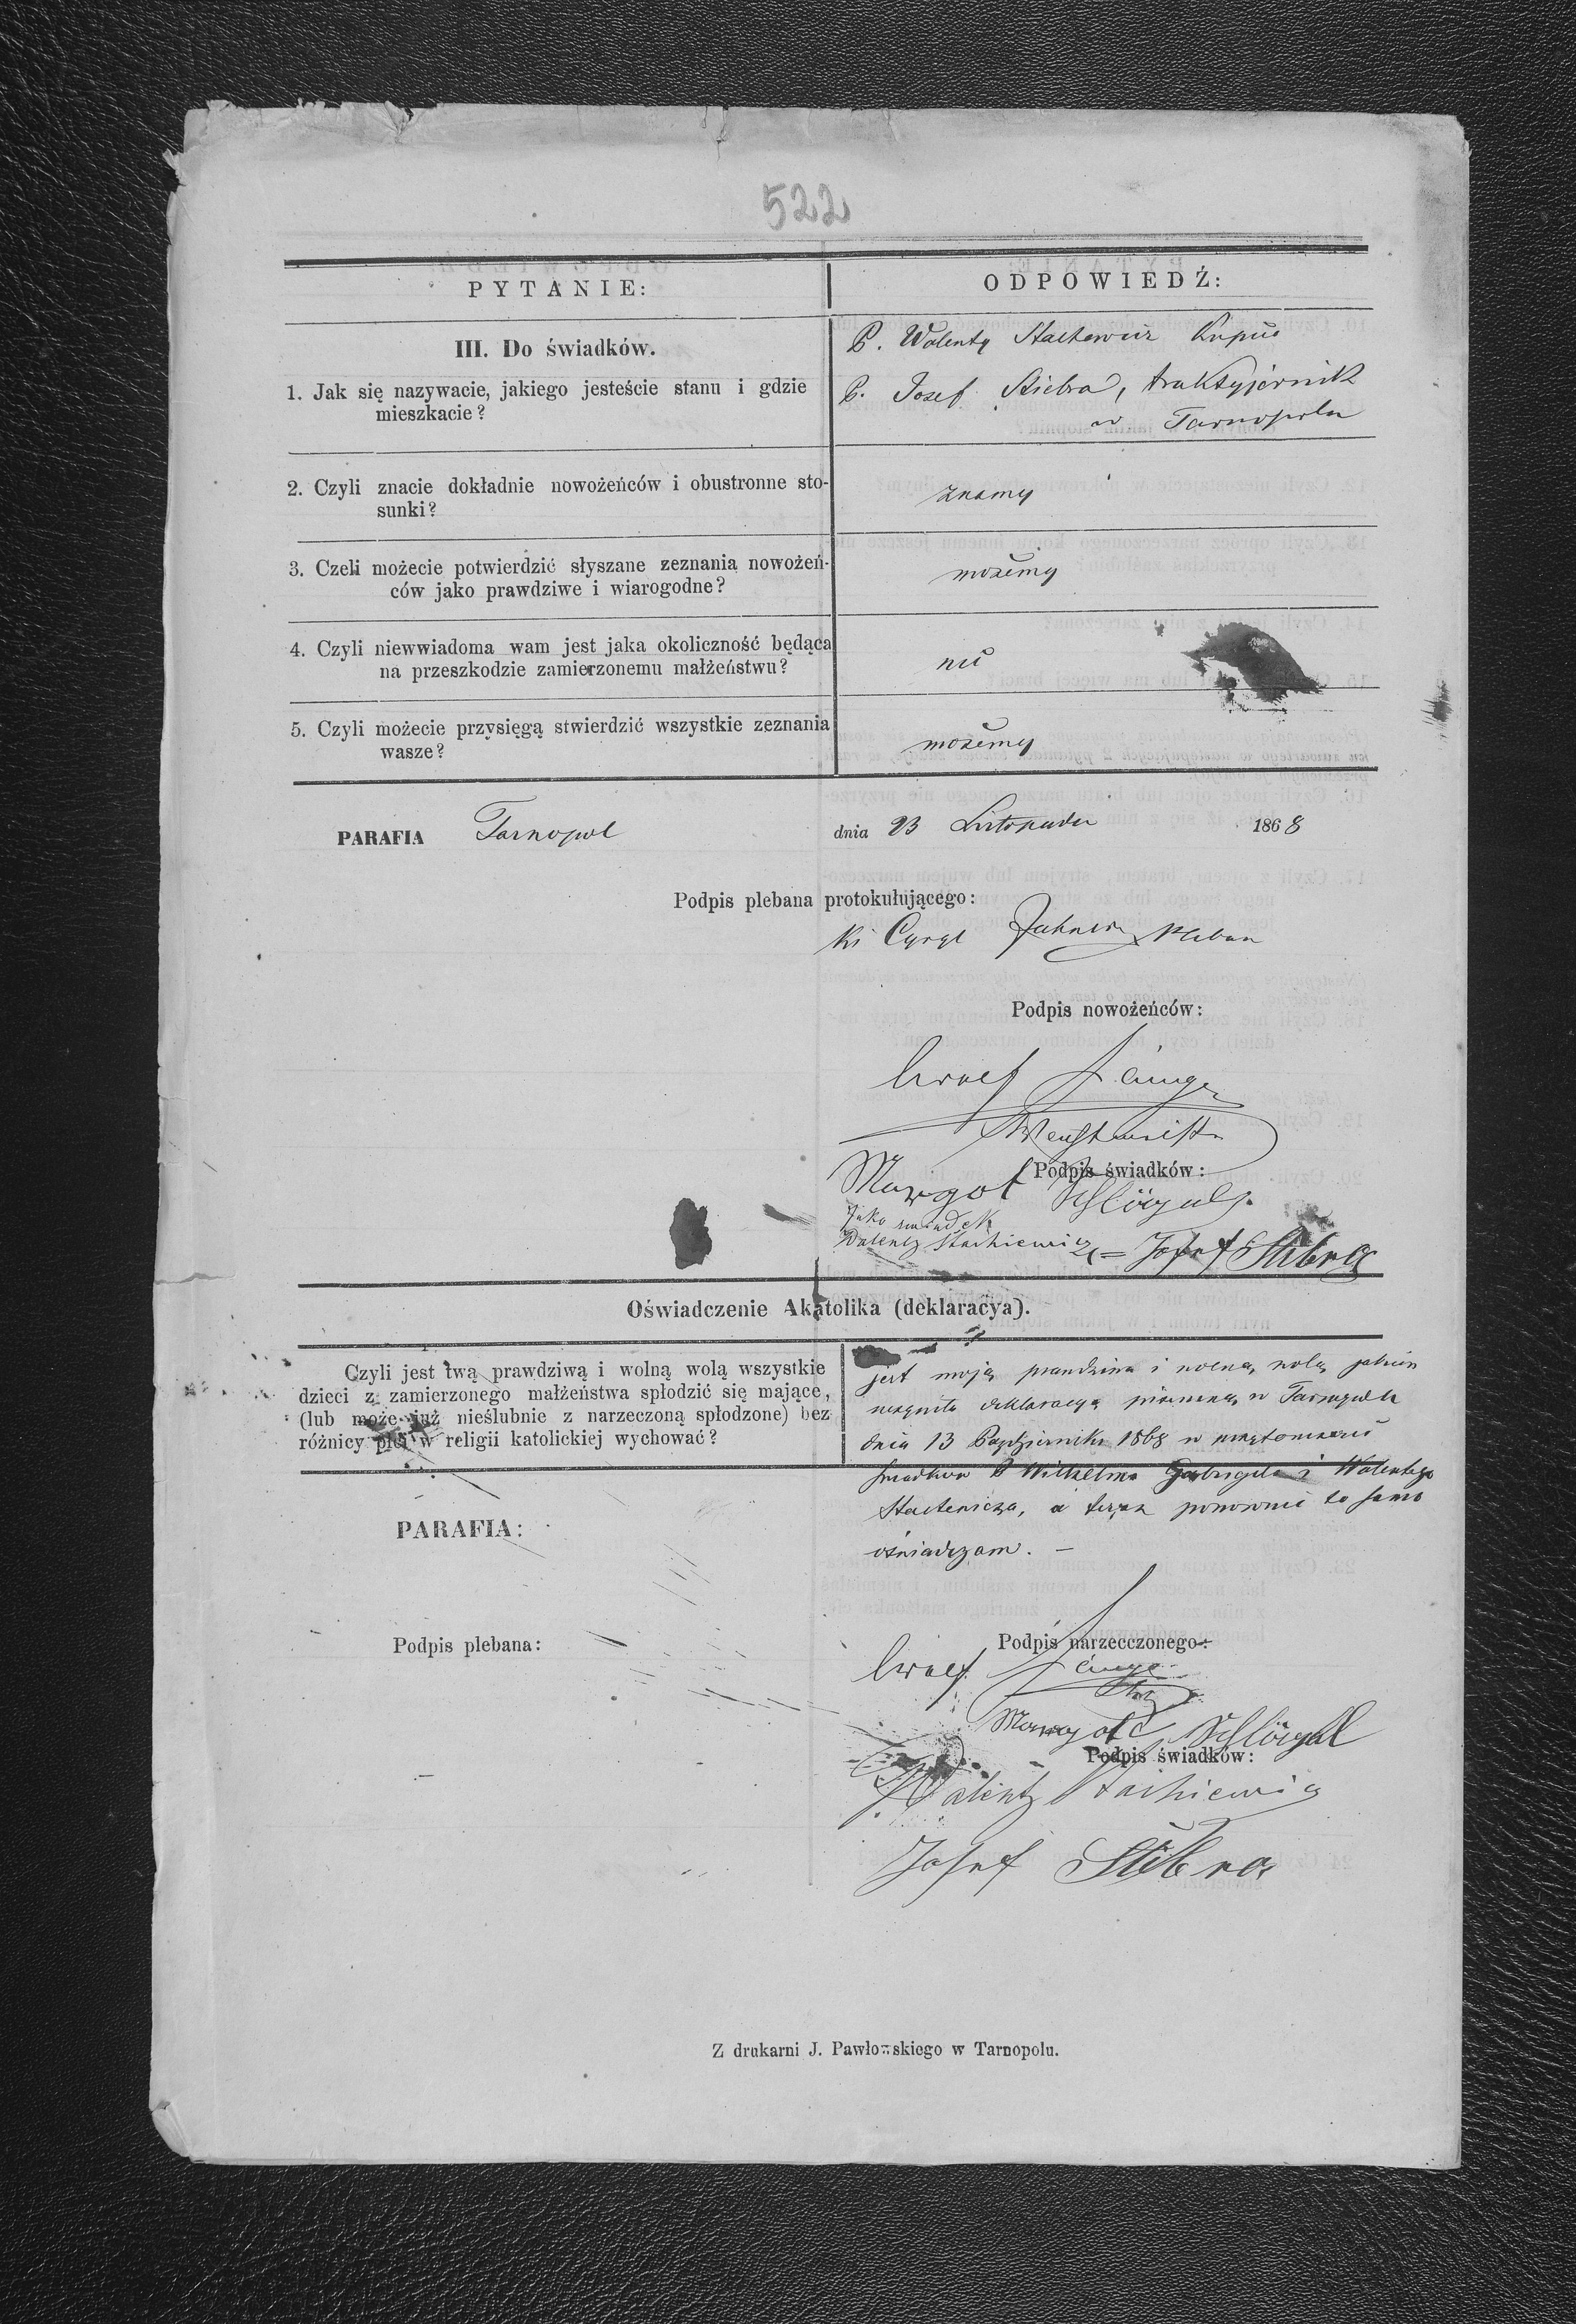 522
PYTANIE:
ODPOWIEDŹ:
III. Do świadków.
P. Walenty Stachewicz Kupiec
1. Jak się nazywacie, jakiego jesteście stanu i gdzie
mieszkacie?
P. Josef Stiebra, traktyjernik
w Tarnopolu
2. Czyli znacie dokładnie nowożeńców i obustronne sto-
sunki?
znamy
3. Czeli możecie potwierdzić słyszane zeznania nowożeń-
ców jako prawdziwe i wiarogodne?
możemy
4. Czyli niewwiadoma wam jest jaka okoliczność będąca
na przeszkodzie zamierzonemu małżeństwu?
nie
5. Czyli możecie przysięgą stwierdzić wszystkie zeznania
wasze?
możemy
PARAFIA Tarnopol dnia 23 Listopada 1868
Podpis plebana protokułującego:
Cyryl pleban
Podpis nowożeńców:
Lange
Margot Schlögel
Podpis świadków:
jako swiadek
Walenty Stachiewicz = Josef Stibra
Oświadczenie Akatolika (deklaracya).
Czyli jest twą prawdziwą i wolną wolą wszystkie
dzieci z zamierzonego małżeństwa spłodzić się mające,
(lub może już nieślubnie z narzeczoną spłodzone) bez
różnicy płci w religii katolickiej wychować?
jest moją prawdziwa i wolną wolą
deklaracyą w Tarnopolu
dnia 13 Października 1868 w
Wilhelma Gabryela i Walentego
Stachewicza, a teraz ponownie to samo
oświadczam. —
PARAFIA:
Podpis plebana:
Podpis narzecczonego:
Lange
Margot Schlögel
Podpis świadków:
Walenty Stachiewicz
Josef Stibra
Z drukarni J. Pawłowskiego w Tarnopolu.